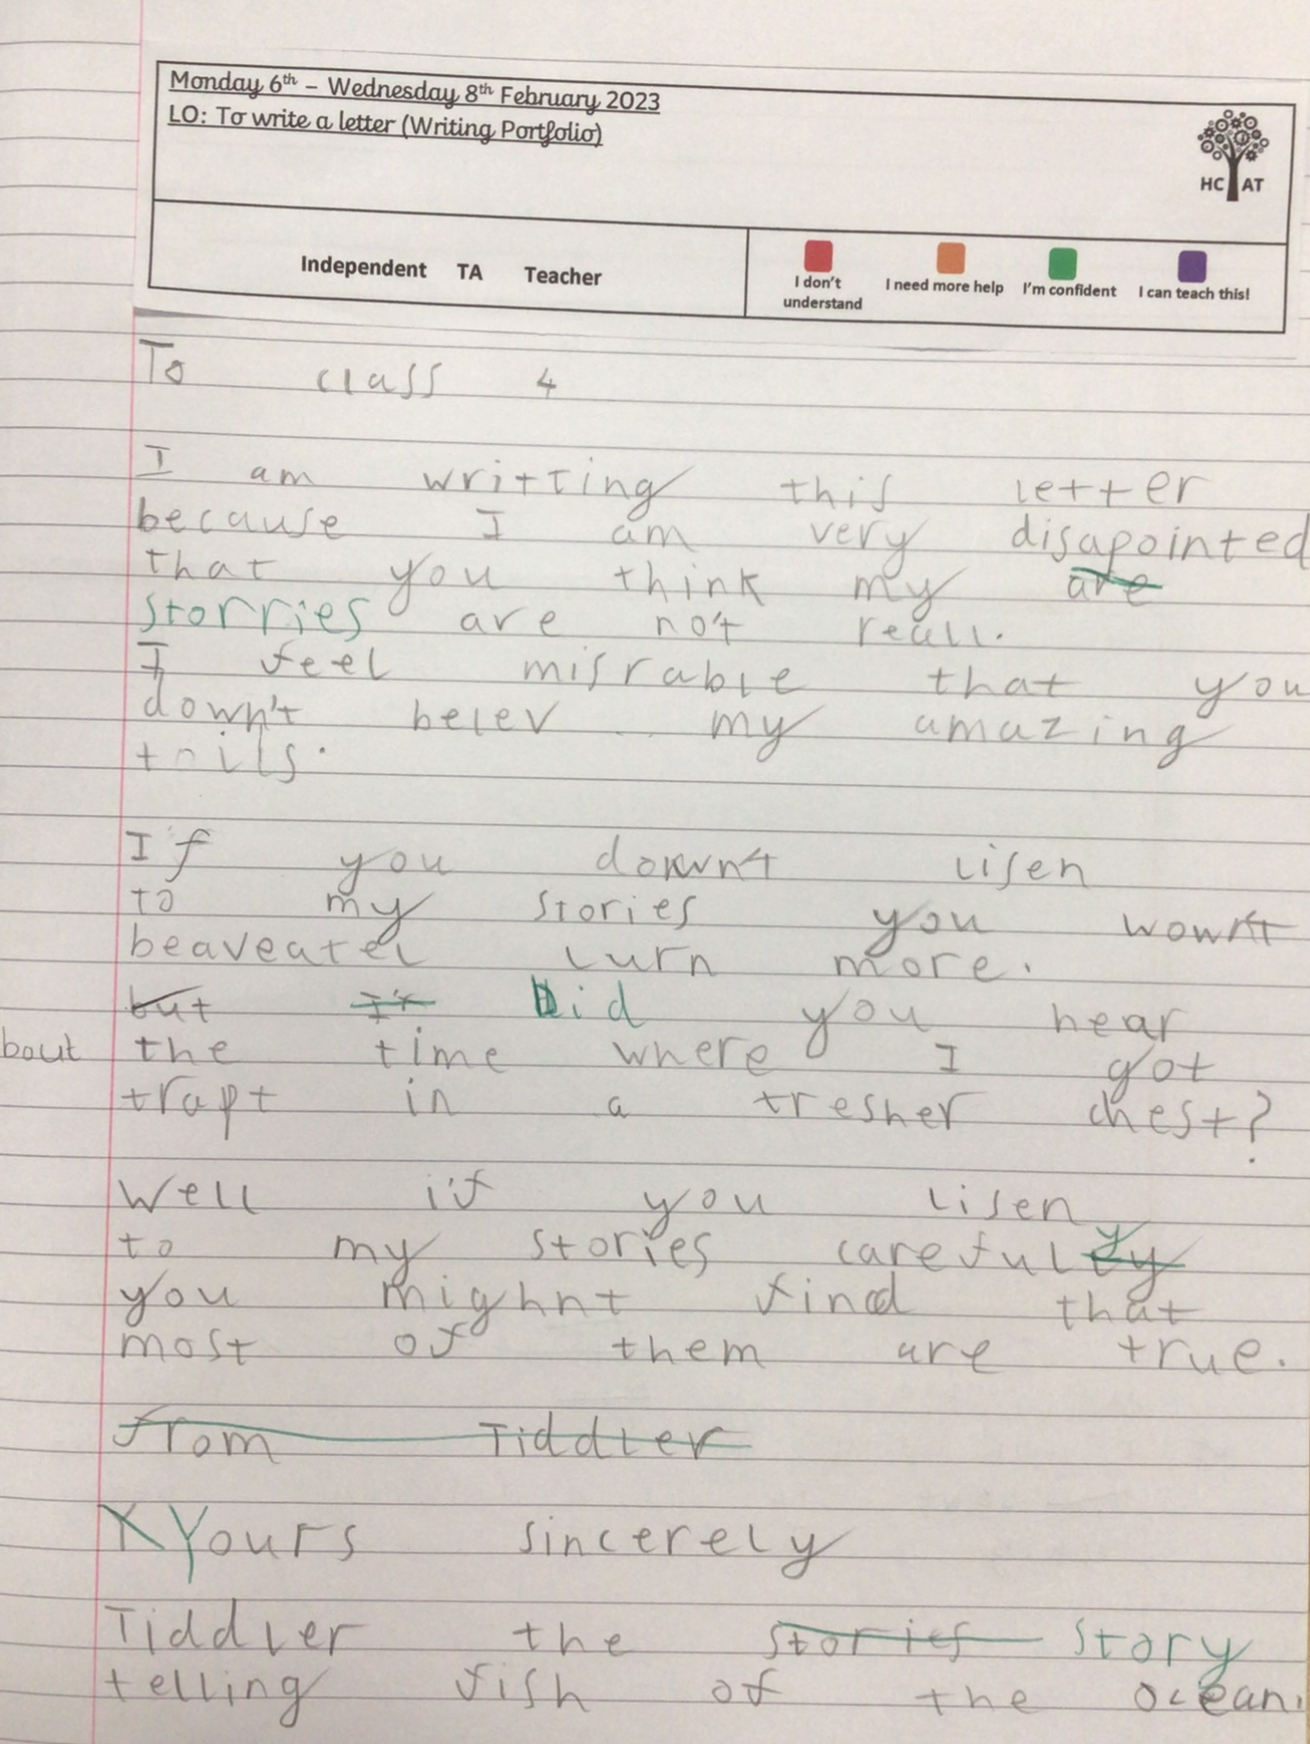 Monday 6th – Wednesday 8th February 2023
LO: To write a letter (Writing Portfolio)
HC AT
Independent TA Teacher
I don't understand
I need more help
I'm confident
I can teach this!
To class 4
I am writting this letter
because I am very disapointed
that you think my are
storries are not reall.
I feel misrable that you
down't belev my amazing
tails.
If you downt lisen
to my stories you wownt
beaveatel lurn more.
but If Did you hear
bout the time where I got
trapt in a tresher chest?
Well if you lisen
to my stories carefully
you mighnt find that
most of them are true.
from Tiddler
Yours sincerely
Tiddler the stories story
telling fish of the ocean.